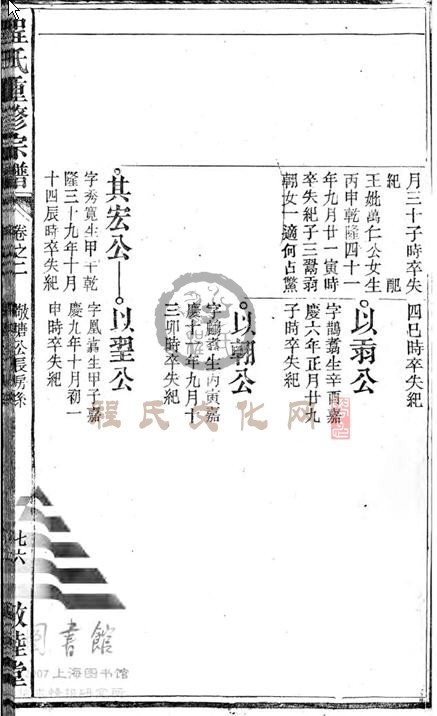 月三十子時卒失
紀 配
王妣萬仁公女生
丙申乾隆四十一
年九月廿一寅時
卒失紀子三
朝女一適何占鰲
四巳時卒失紀
以公
字鵲翥生辛酉嘉
慶六年正月廿九
子時卒失紀
以朝公
翥生丙寅嘉
慶十一年九月十
三卯時卒失紀
其宏公
字秀寬生甲午乾
隆三十九年十月
十四辰時卒失紀
以翌公
字鳳翥生甲子嘉
慶九年十月初一
申時卒失紀
程氏重修宗譜
卷之二
公長房系
七六
敦睦堂
程氏文化网
图書館
007上海图书馆